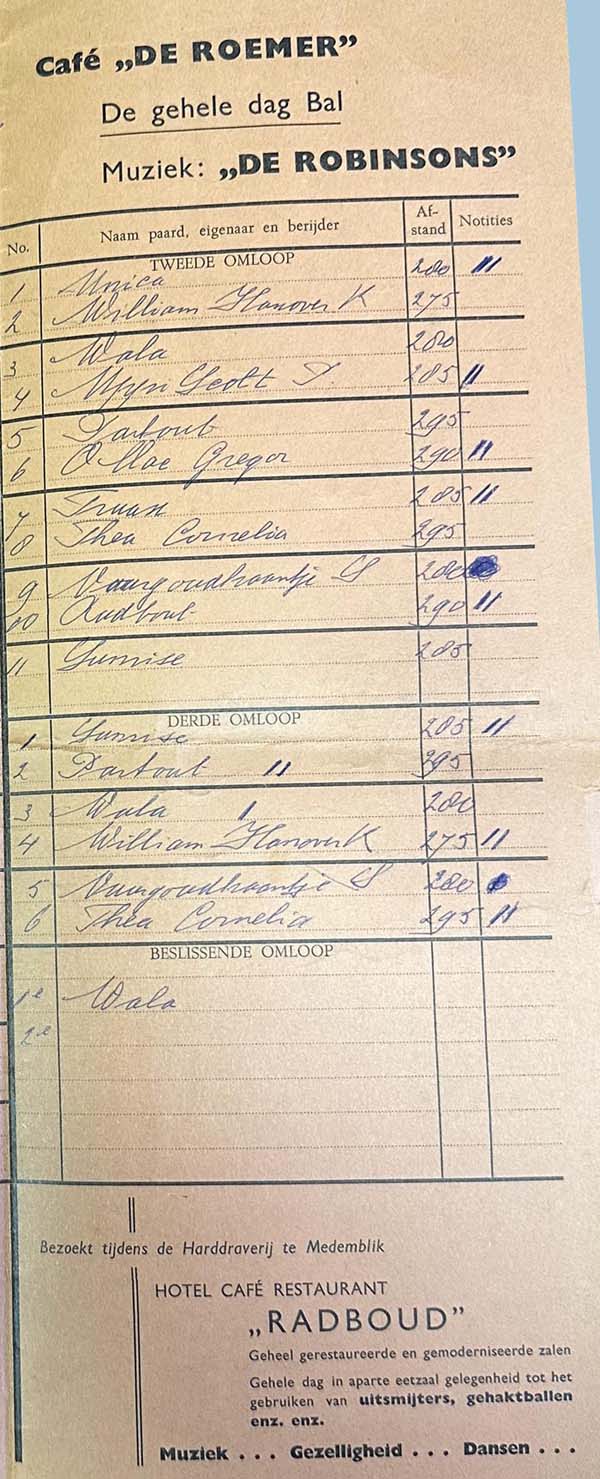 Café „DE ROEMER”
De gehele dag Bal
Muziek: „DE ROBINSONS”
No. Naam paard, eigenaar en berijder Af-stand Notities
TWEEDE OMLOOP
1 Unica 280 "
2 William Hanover K 275
3 Wala 280
4 Myn Scott S. 285 "
5 Partout 295
6 O Mac Gregor 290 "
7 Truan 285 "
8 Thea Cornelia 295
9 Vuurgoudhaantje S 280
10 Radbout 290 "
11 Sunrise 285
DERDE OMLOOP
1 Sunrise 285 "
2 Partout " 295
3 Wala 280
4 William Hanover K 275 "
5 Vuurgoudhaantje S 280
6 Thea Cornelia 295 "
BESLISSENDE OMLOOP
1e Wala
2e
Bezoekt tijdens de Harddraverij te Medemblik
HOTEL CAFÉ RESTAURANT
„RADBOUD”
Geheel gerestaureerde en gemoderniseerde zalen
Gehele dag in aparte eetzaal gelegenheid tot het
gebruiken van uitsmijters, gehaktballen
enz. enz.
Muziek . . . Gezelligheid . . . Dansen . . .